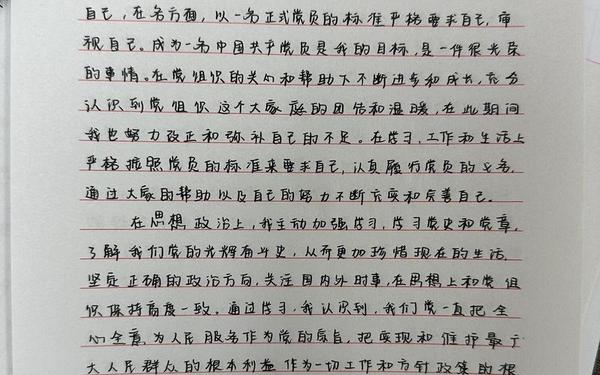 自己，在各方面，以一名正式党员的标准严格要求自己，审
视自己。成为一名中国共产党员是我的目标，是一件很光荣
的事情。在党组织的关心和帮助下不断进步和成长，充分
认识到党组织这个大家庭的团结和温暖，在此期间
我也努力改正和弥补自己的不足。在学习、工作和生活上
严格按照党员的标准来要求自己，认真履行党员的义务，
通过大家的帮助以及自己的努力不断充实和完善自己。
在思想政治上，我主动加强学习，学习党史和党章，
了解我们党的光辉奋斗史，从而更加珍惜现在的生活，
坚定正确的政治方向，关注国内外时事，在思想上和党组
织保持高度一致。通过学习，我认识到，我们党一直把全
心全意为人民服务作为党的宗旨，把实现和维护最广
大人民群众的根本利益作为一切工作和方针政策的根